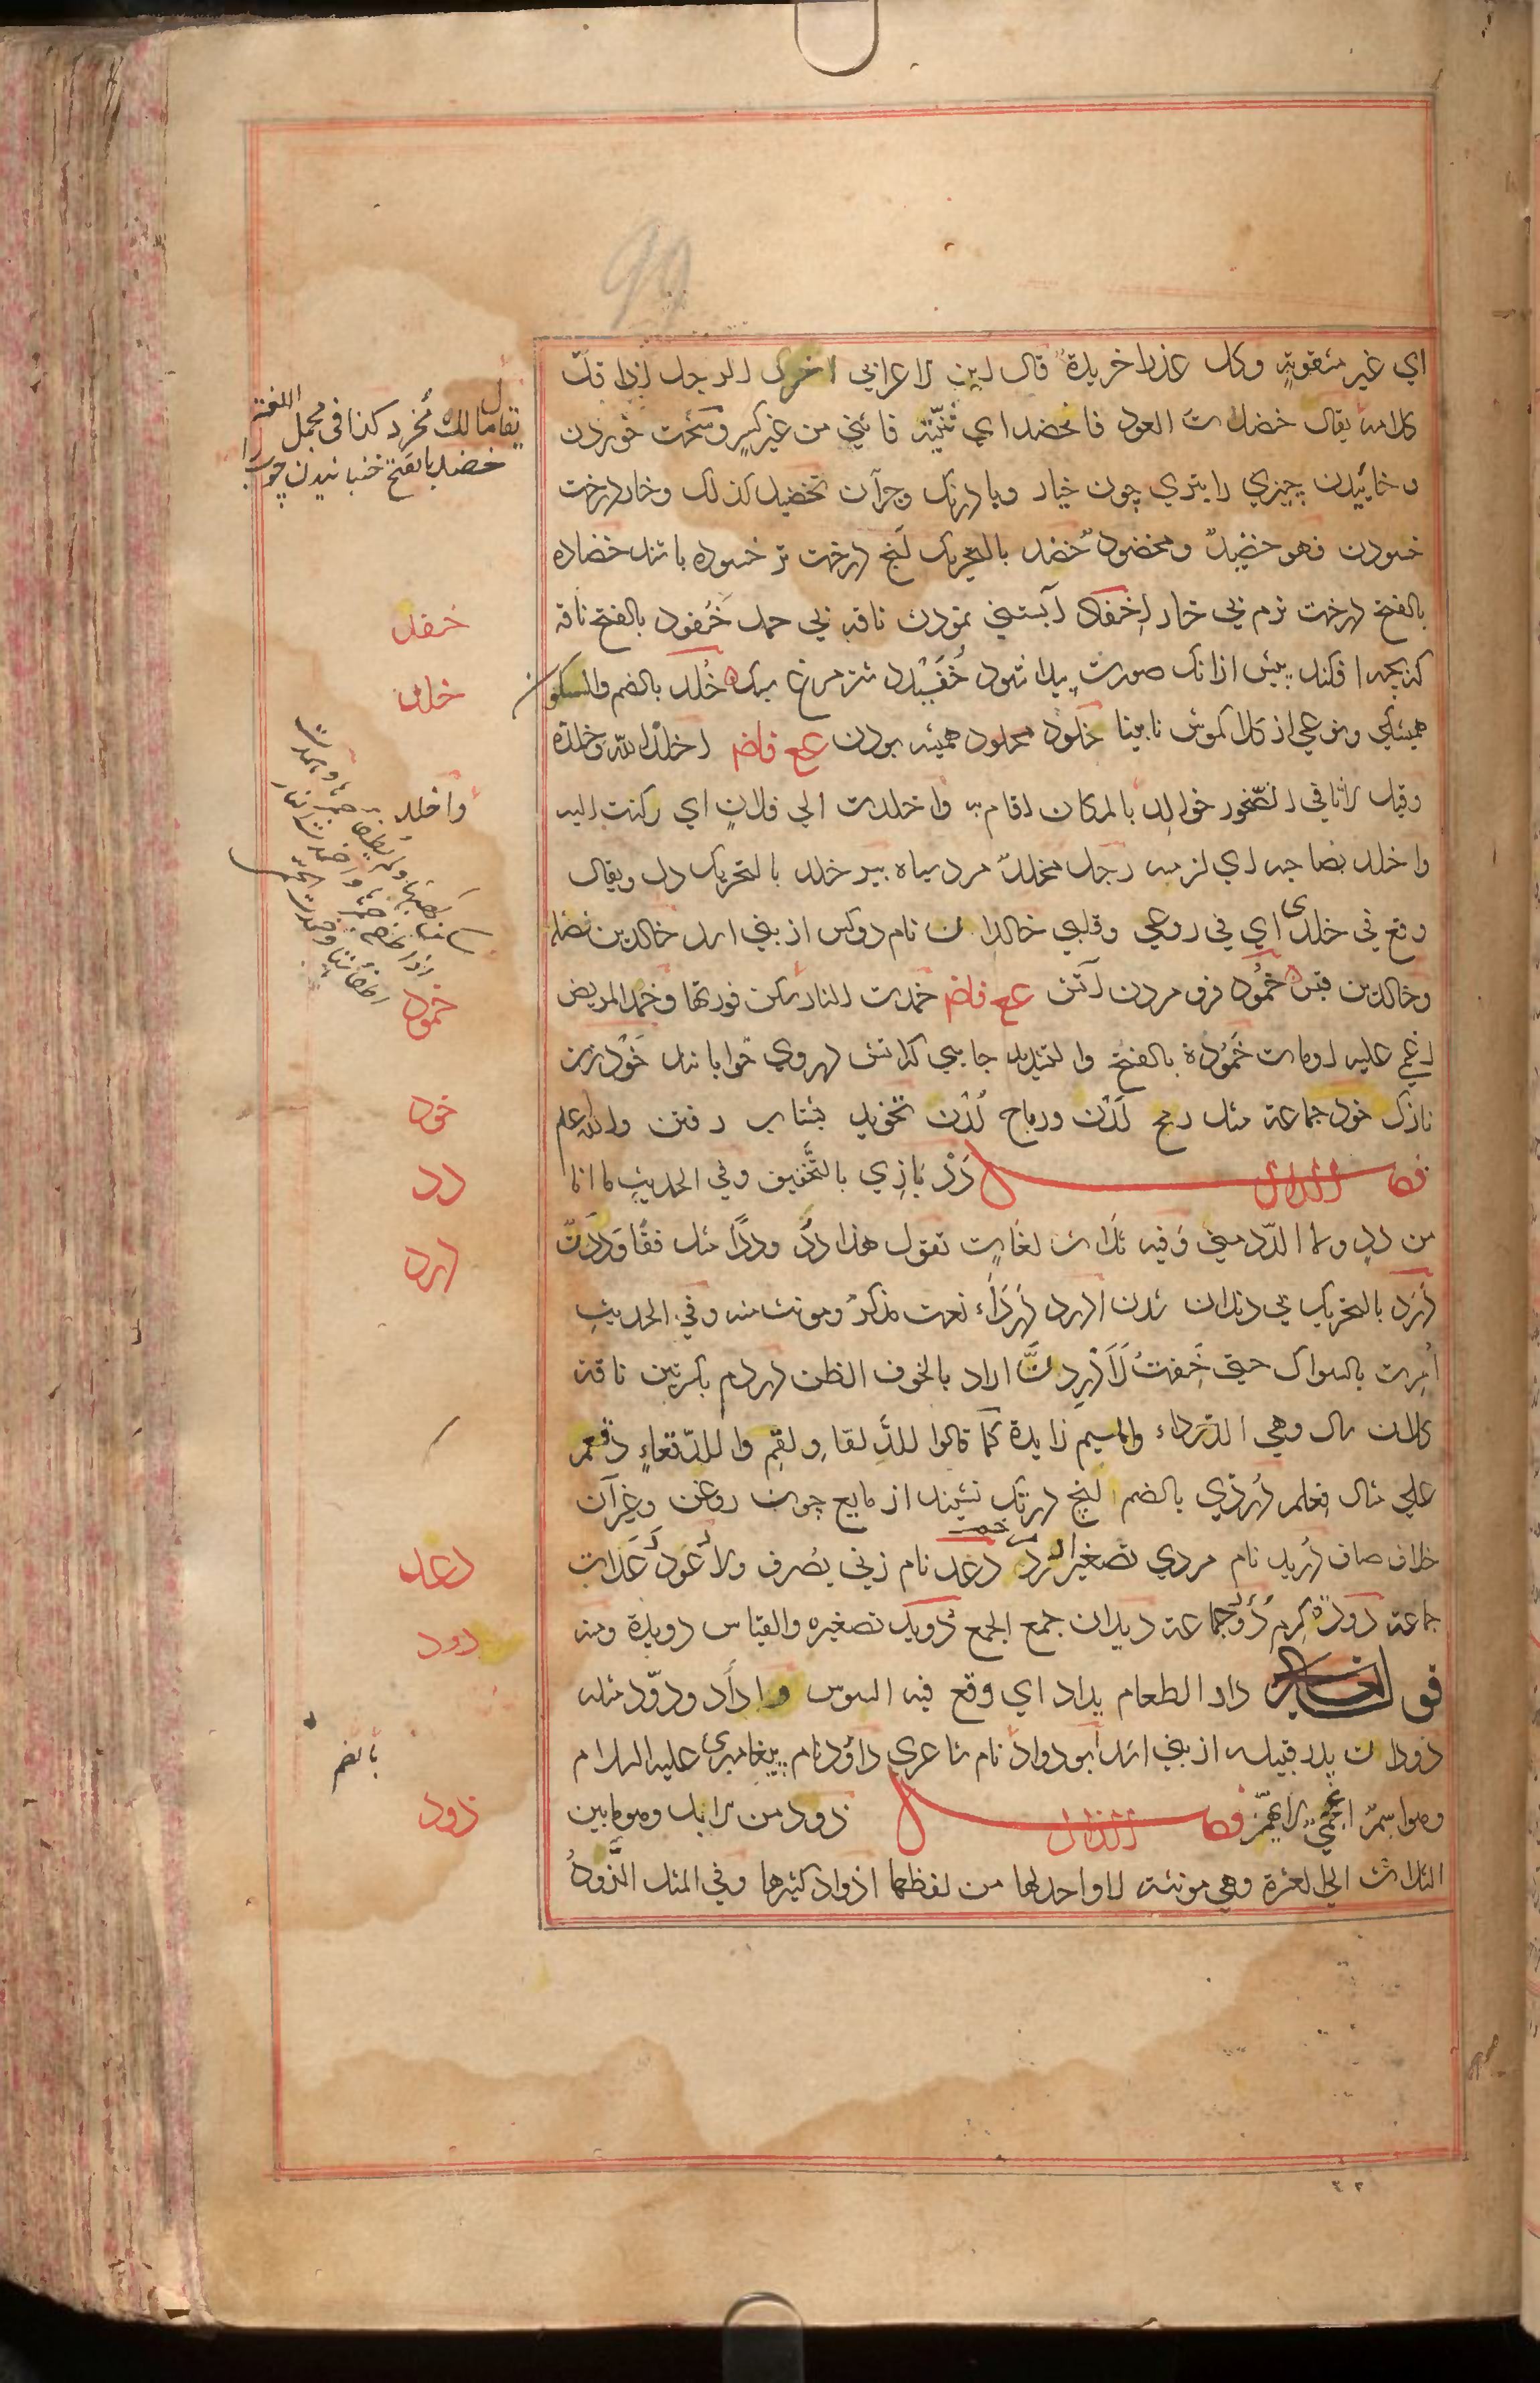 اي غير مثقوبة وكل عذرا خريدة قال ابن الاعرابي اخرد الرجل اذا قلّ
كلامه يقال خضدت العود فانخضد اي ثنيته فانثني من غير كسر وسخت خوردن
و خائيدن چيزي را بتري چون خيار و بادرنگ وجز آن تخضيد كذلك وخار درخت
خسودن فهو خضيد ومخضود خضد بالتحريك آنچ درخت تر خسوده باشد خضاده
بالفتح درخت نرم بي خار اخفاد آبستني نمودن ناقه بي حمل خفود بالفتح ناقه
كه بچه افكند پيش ازانك صورت پيدا شود خفيدد شتر مرغ سبك خلد بالضم والسكون
هميشگي ونوعي از كلاكموش نابينا خلود مخلود هميشه بودن عع فاضم اخلد الله وخلده
وقيل لاثافي الصخور خوالد بالمكان اقام به واخلدت الي فلان اي ركنت اليه
واخلد بصاحبه اي لزمه رجل مخلد مرد سياه بير خلد بالتحريك دل ويقال
وقع في خلدي اي في روعي وقلبي خالدان نام دوكس از بني اسد خالد بن نضله
وخالد بن قيس خمود فرو مردن آتش عع فاضم خمدت النار سكن فورتها وخمد المريض
اغمي عليه او مات خمودة بالفتح والتشديد جايي كه آتش دروي خوابانند خود زن
نازك خود جماعة مثل رمح لدن ورماح لدن تخويد بشتاب رفتن والله اعلم
فصل الدال دد بازي بالتخفيف وفي الحديث ما انا
من دد ولا الدد مني وفيه ثلاث لغات تقول هذا دد وددا مثل قفا وددن
درد بالتحريك بي دندان شدن ادرد درداء نعت مذكر ومونث منه وفي الحديث
امرت بالسواك حتي خفت لادردن اراد بالخوف الظن دردم بكسرتين ناقه
كلان سال وهي الدرداء والميم زايدة كما قالوا للدلقاء دلقم وللدقعاء دقعم
علي مثال فعلم دردي بالضم آنچ درتك نشيند از مايع چون روغن وغير آن
خلاف صاف دريد نام مردي تصغير ادرد مرخم دعد نام زني يصرف ولا دعود دعدات
جماعة دودة كرم دود جماعة ديدان جمع الجمع دويد تصغيره والقياس دويدة ومنه
قولـ داد الطعام يداد اي وقع فيه السوس واداد ودوّد مثله
دودان پدر قبيله از بني اسد ابو دواد نام شاعري داؤد نام پيغامبري عليه السلام
وهو اسم اعجمي لا يهمز فصل الذال ذود من الابل وهو مابين
الثلاث الي العشرة وهي مونثة لا واحد لها من لفظها اذواد كثيرها وفي المثل الذود
يقال مالك مخرد كذا في مجمل اللغة
خضد بالفتح خنبانيدن چوب را
خفد
خلد
واخلد
خمود
خود
دد
درد
دعد
دود
بالضم
ذود